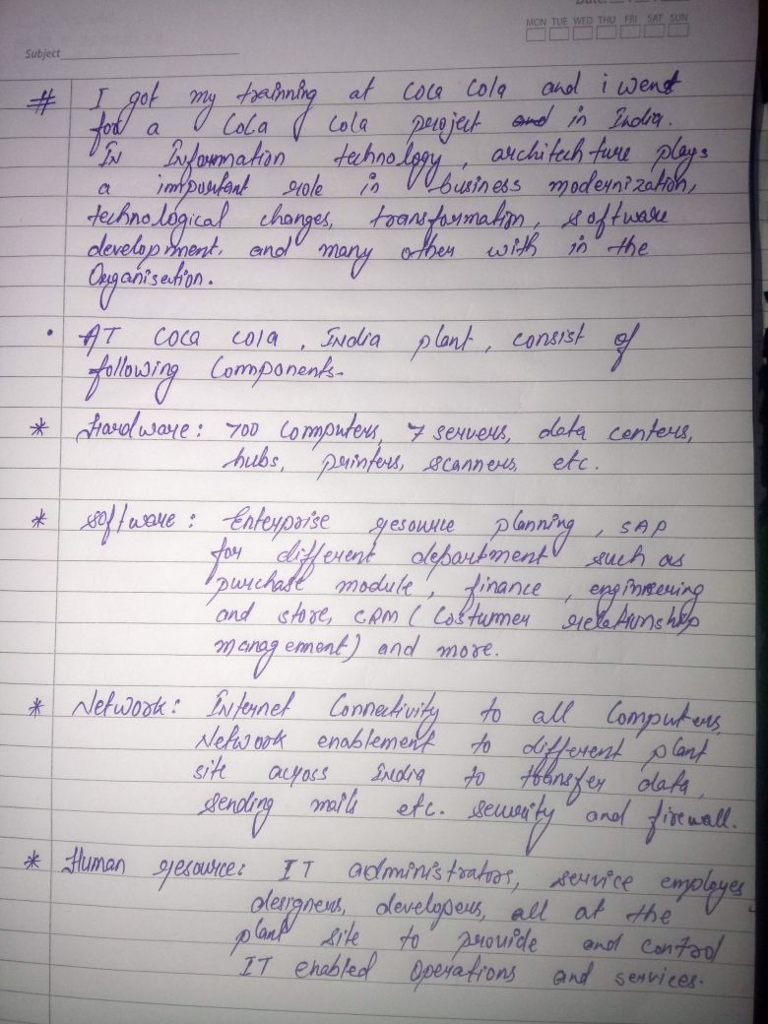 Date:
MON TUE WED THU FRI SAT SUN
Subject
# I got my trainning at coca cola and i went
for a Cola Cola project and in India.
In Information technology, architechture plays
a important role in business modernization,
technological changes, transformation, software
development, and many other with in the
Organisation.
• AT coca cola, India plant, consist of
following Components-
* Hardware: 700 Computers, 7 servers, data centers,
hubs, printers, scanners, etc.
* software: Enterprise resource planning, SAP
for different department such as
purchase module, finance, engineering
and store, CRM (Costumer relationship
management) and more.
* Network: Internet Connectivity to all Computers,
Network enablement to different plant
site across India to transfer data,
sending mails etc. security and firewall.
* Human resource: IT administrators, service employes,
designers, developers, all at the
plant site to provide and control
IT enabled operations and services.